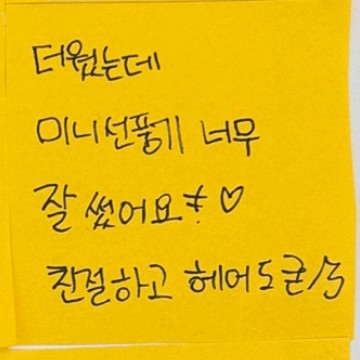 더웠는데
미니선풍기 너무
잘 썼어요! ♡
친절하고 헤어도 굳